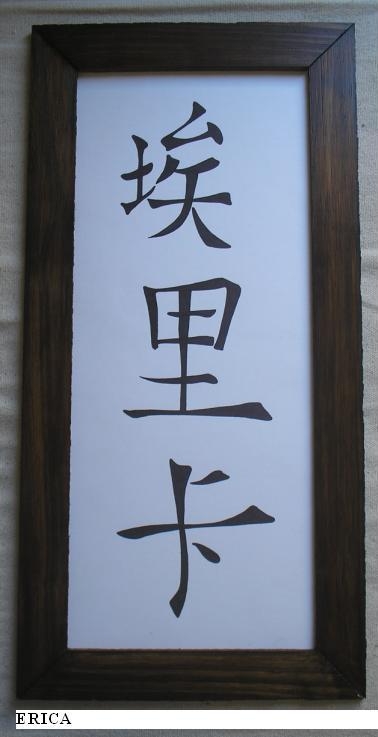 埃里卡
ERICA